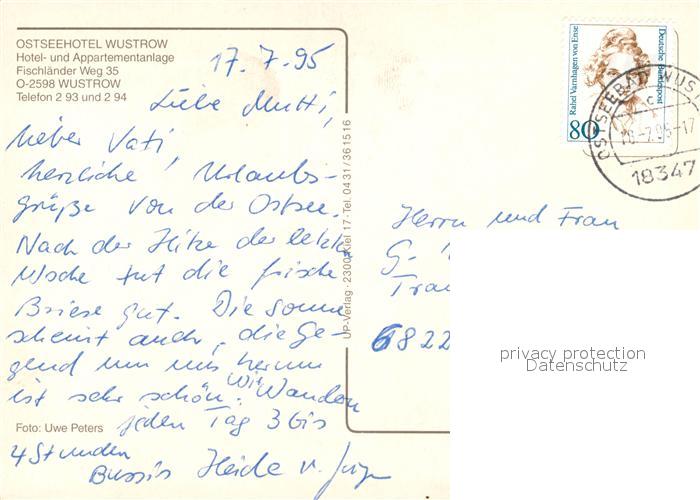 OSTSEEHOTEL WUSTROW
Hotel- und Appartementanlage
Fischländer Weg 35
O-2598 WUSTROW
Telefon 2 93 und 2 94
17.7.95
Liebe Mutti,
lieber Vati,
herzliche Urlaubs-
grüße von der Ostsee.
Nach der Hitze der letzten
Woche tut die frische
Briese gut. Die Sonne
scheint auch, die Ge-
gend um uns herum
ist sehr schön. Wir Wandern
jeden Tag 3 bis
4 Stunden
Bussis Heide u.
Foto: Uwe Peters
UP-Verlag · 2300 Kiel 17 · Tel. 0431/361516
Rahel Varnhagen von Ense
Deutsche Bundespost
80
OSTSEEBAD WUST
c
-7.95-17
18347
Herrn und Frau
G.
Trau
6822
privacy protection
Datenschutz